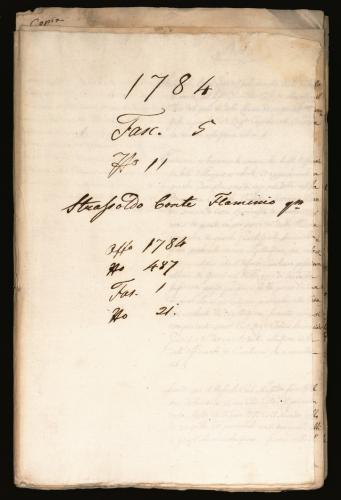 Copia
1784
Fasc. 5
No 11
Strassoldo Conte Flaminio qm
1784
No 487
Fas. 1
No 21.